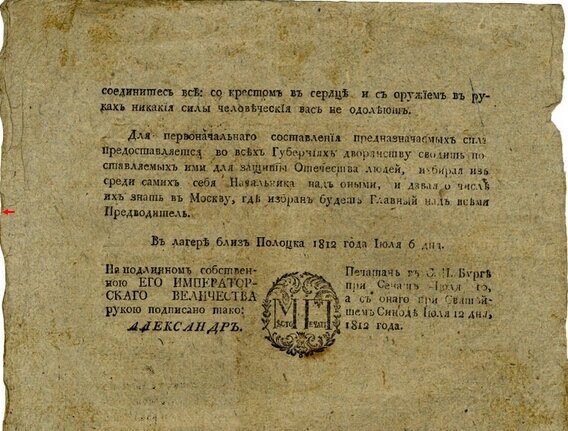 соединитесь всѣ: со крестомъ въ сердцѣ и съ оружіемъ въ ру-
кахъ никакія силы человѣческія васъ не одолѣютъ.
Для первоначальнаго составленія предназначаемыхъ силъ
предоставляется во всѣхъ Губерніяхъ дворянству сводить по-
ставляемыхъ ими для защиты Отечества людей, избирая изъ
среди самихъ себя Начальника надъ оными, и давая о числѣ
ихъ знать въ Москву, гдѣ избранъ будетъ Главный надъ всѣми
Предводитель.
Въ лагерѣ близъ Полоцка 1812 года Іюля 6 дня.
На подлинномъ собствен-
ною ЕГО ИМПЕРАТОР-
СКАГО ВЕЛИЧЕСТВА
рукою подписано тако:
АЛЕКСАНДРЪ.
МѢСТО ПЕЧАТИ
Печатанъ въ С. П. Бургѣ
при Сенатѣ Іюля
а съ онаго при Святѣй-
шемъ Сѵнодѣ Іюля 12 дня,
1812 года.